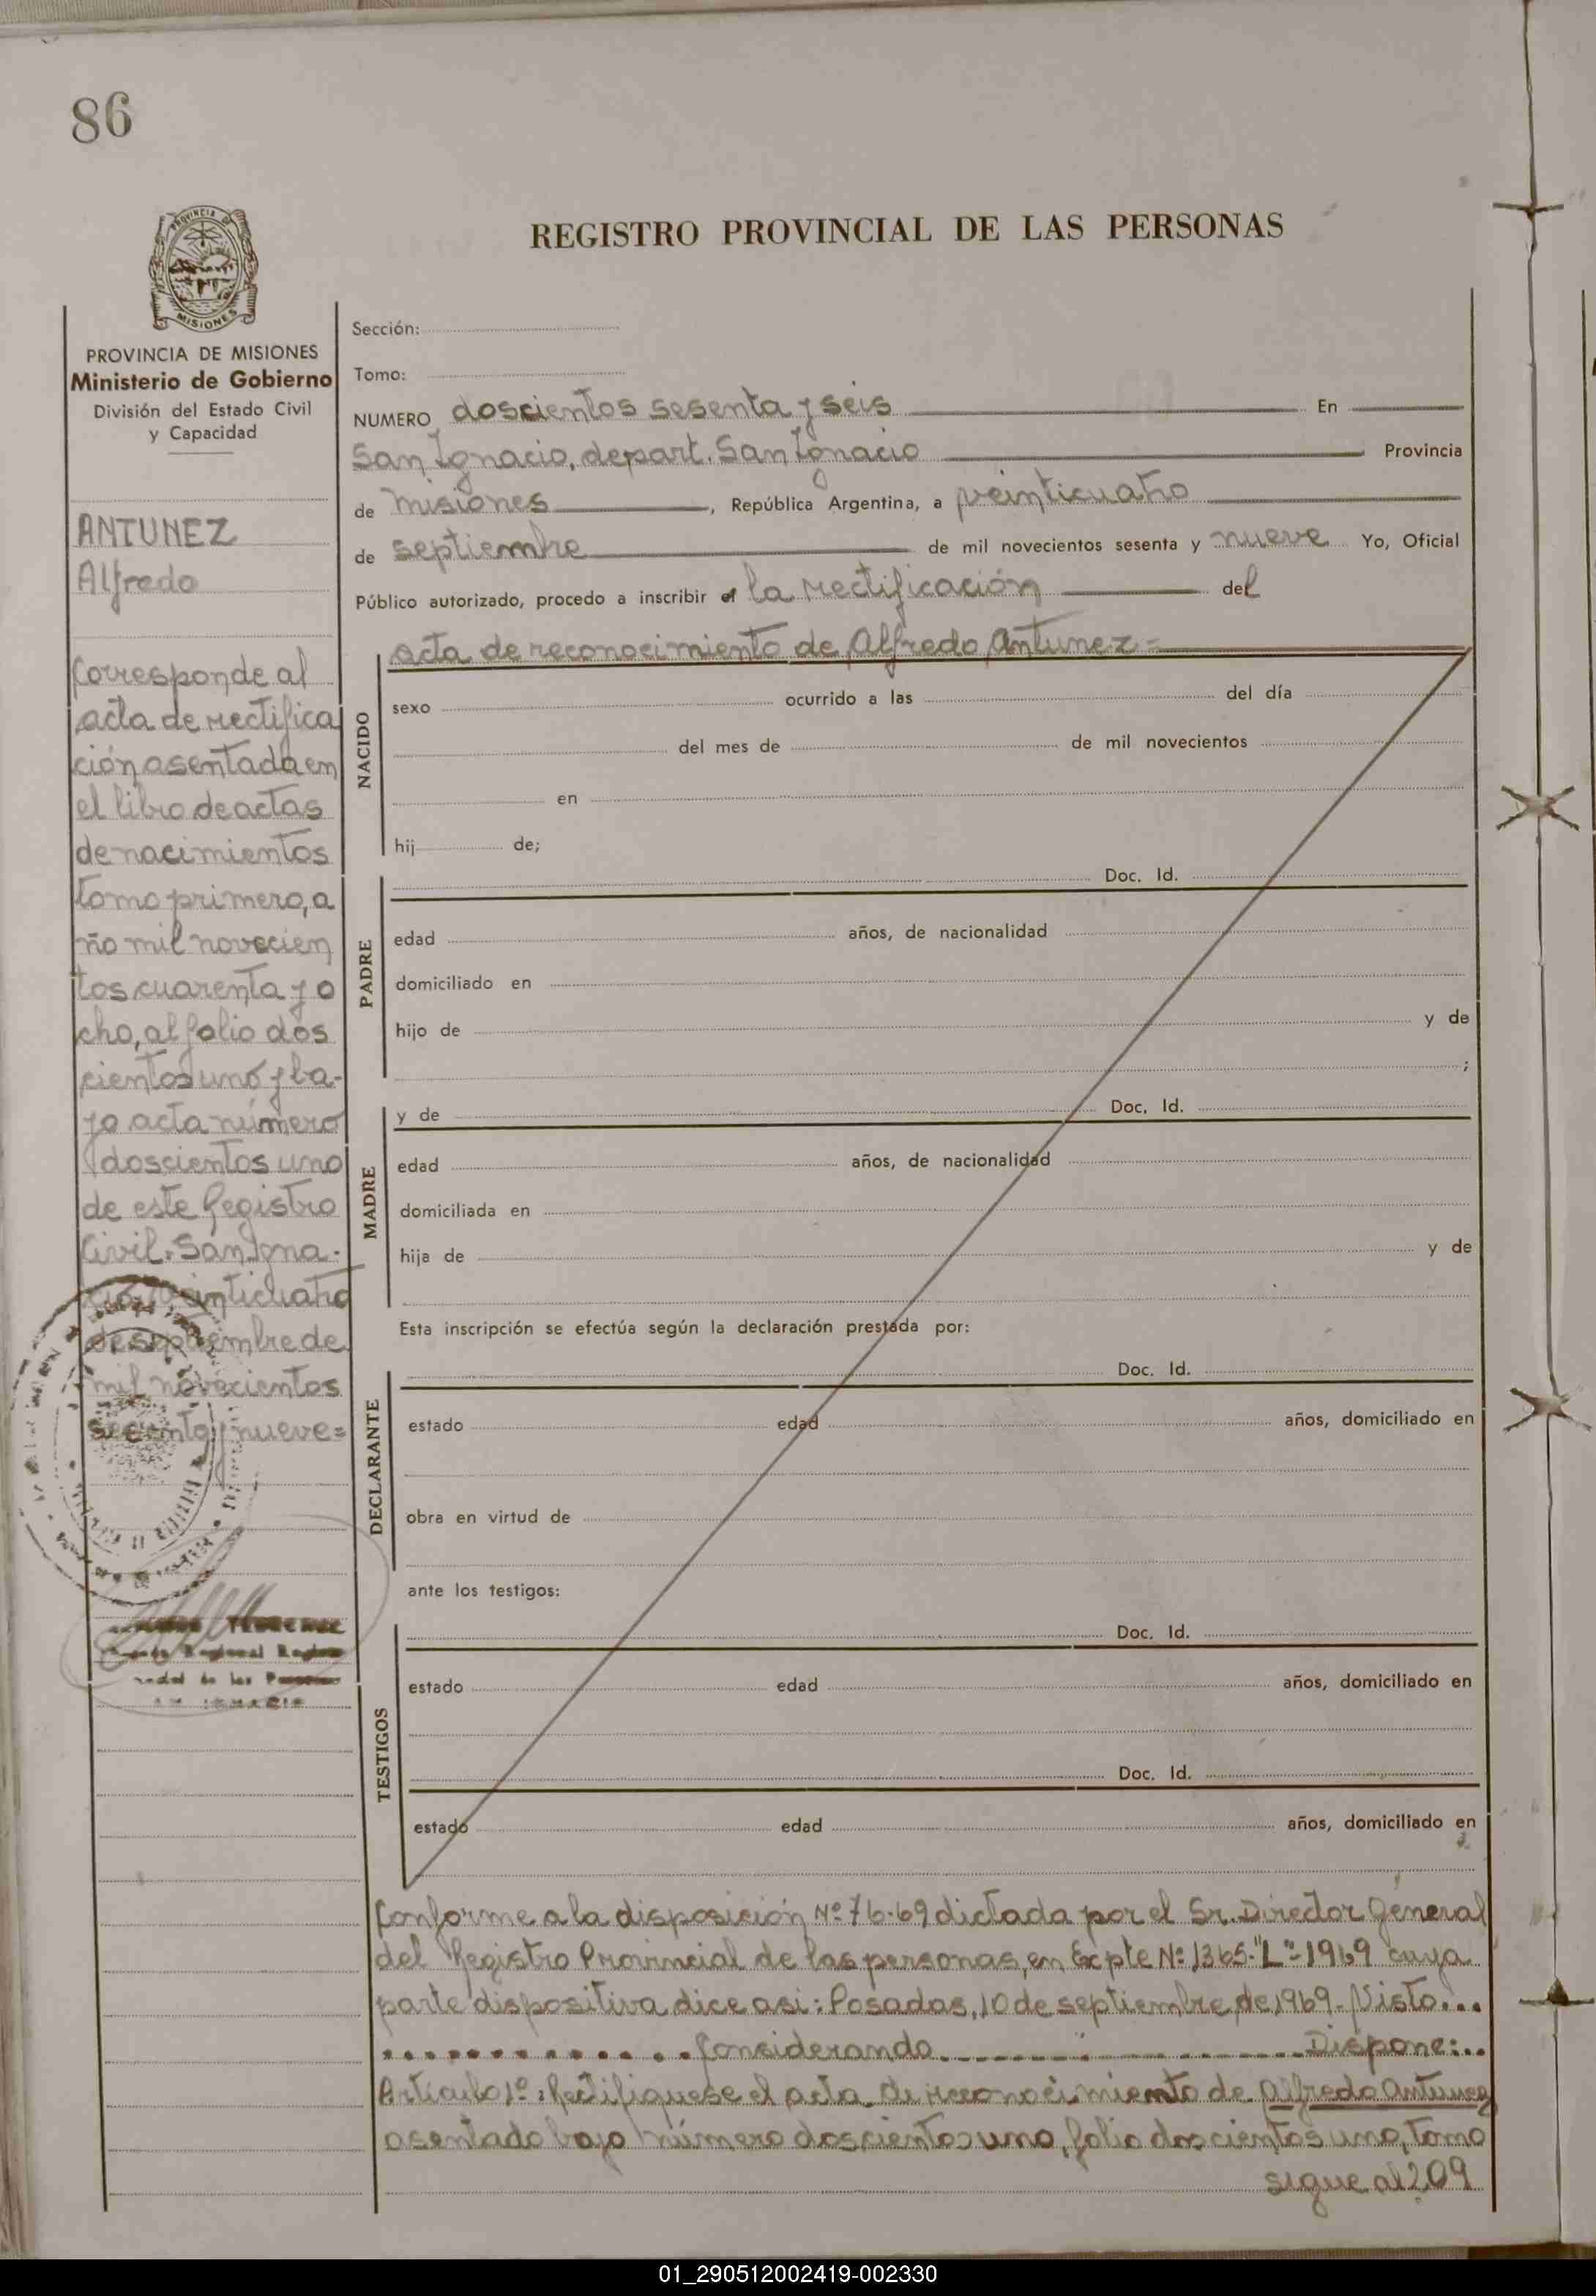 86
REGISTRO PROVINCIAL DE LAS PERSONAS
PROVINCIA DE MISIONES
PROVINCIA DE MISIONES
Ministerio de Gobierno
División del Estado Civil
y Capacidad
ANTUNEZ
Alfredo
Corresponde al
acta de rectifica
ción asentada en
el libro de actas
de nacimientos
tomo primero, a
ño mil novecien
tos cuarenta y o
cho, al folio dos
cientos uno y ba-
jo acta número
doscientos uno
de este Registro
Civil. San Igna-
cio, veinticuatro
de septiembre de
mil novecientos
sesenta y nueve=
Regional
de las Personas
Sección:
Tomo:
NUMERO doscientos sesenta y seis En
San Ignacio, depart. San Ignacio Provincia
de Misiones, República Argentina, a veinticuatro
de septiembre de mil novecientos sesenta y nueve Yo, Oficial
Público autorizado, procedo a inscribir el la rectificación del
acta de reconocimiento de Alfredo Antunez=
NACIDO
sexo ocurrido a las del día
del mes de de mil novecientos
en
hij de;
Doc. Id.
PADRE
edad años, de nacionalidad
domiciliado en
hijo de y de
;
y de Doc. Id.
MADRE
edad años, de nacionalidad
domiciliada en
hija de y de
Esta inscripción se efectúa según la declaración prestada por:
Doc. Id.
DECLARANTE
estado edad años, domiciliado en
obra en virtud de
ante los testigos:
Doc. Id.
TESTIGOS
estado edad años, domiciliado en
Doc. Id.
estado edad años, domiciliado en
Conforme a la disposición Nº 76-69 dictada por el Sr. Director General
del Registro Provincial de las personas, en Expte Nº 1365-"L"-1969 cuya
parte dispositiva dice asi: Posadas, 10 de septiembre de 1969. Visto...
.............Considerando..................Dispone:..
Artículo 1º: Rectifiquese el acta de reconocimiento de Alfredo Antunez
asentado bajo número doscientos uno, folio doscientos uno, tomo
sigue al 209
01_290512002419-002330